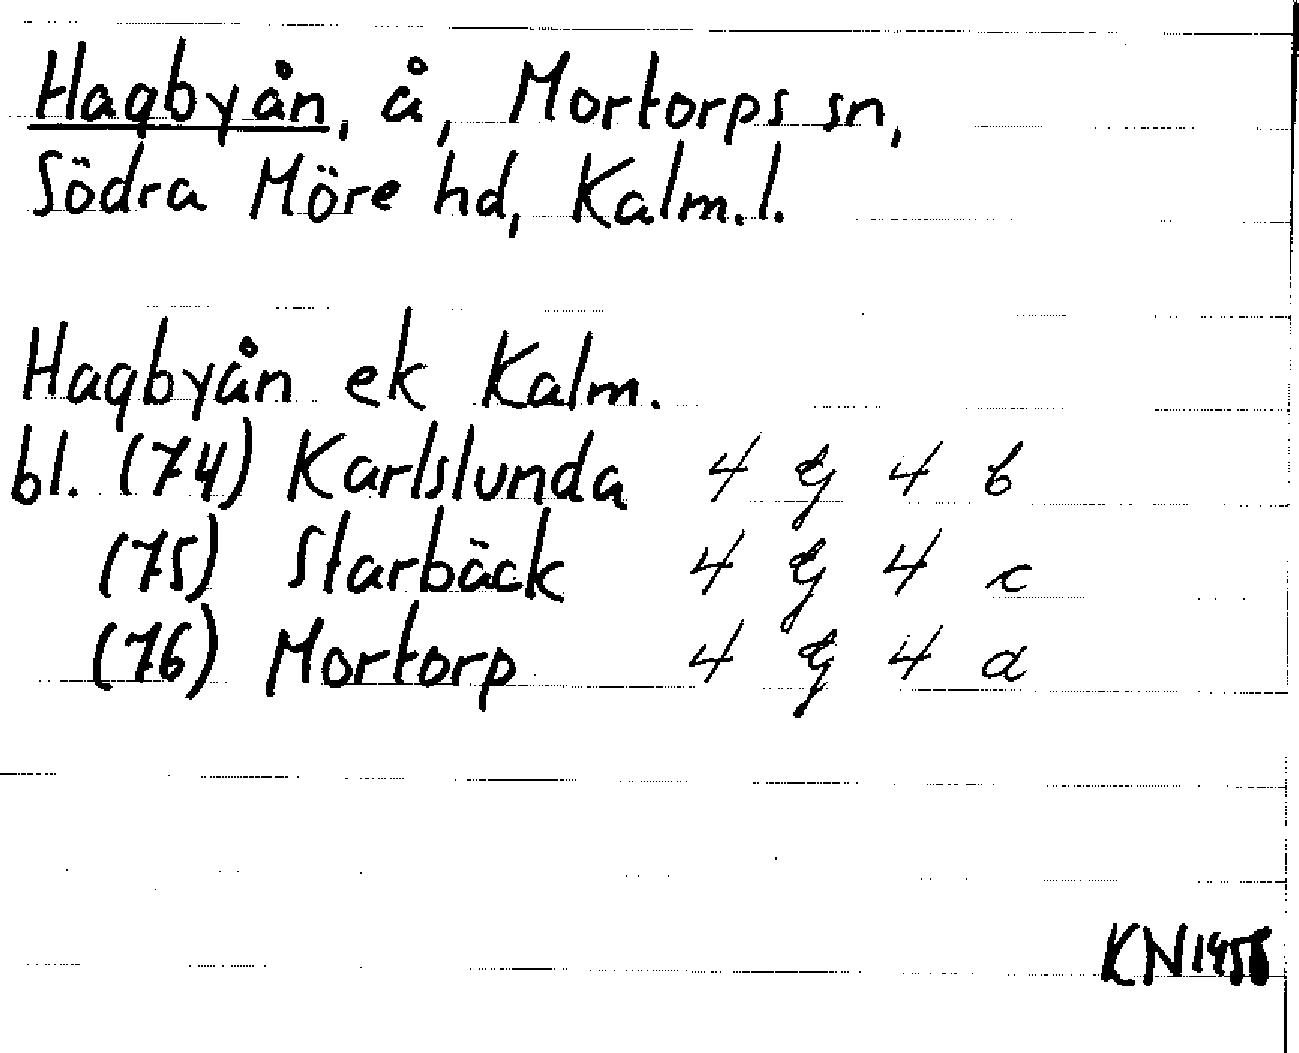 Hagbyån, å, Mortorps sn,
Södra Möre hd, Kalm. l.
Hagbyån ek Kalm.
bl. (74) Karlslunda 4 G 4 b
(75) Starbäck 4 G 4 c
(76) Mortorp 4 G 4 a
KN 1958